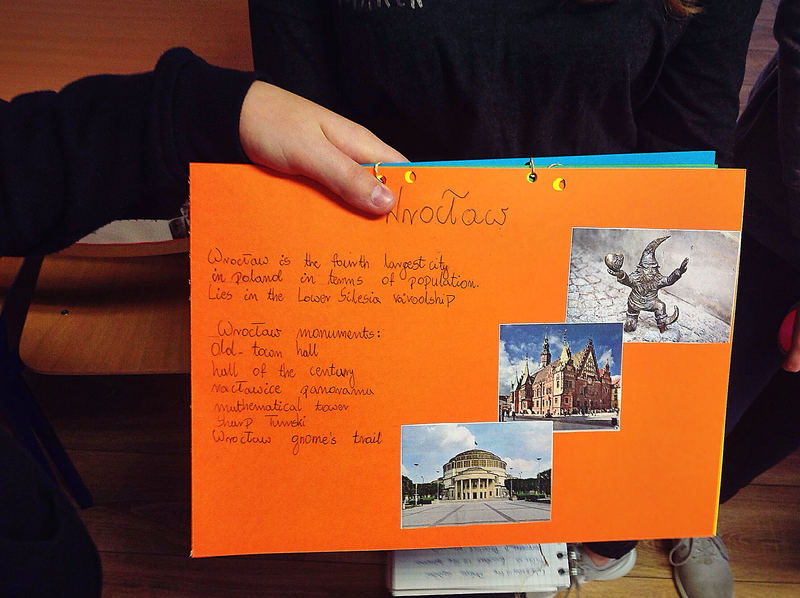 Wrocław
Wrocław is the fourth largest city
in Poland in terms of population.
Lies in the Lower Silesia voivoolship
Wrocław monuments:
Old-town hall
hall of the century
racławice panorama
mathematical tower
Wrocław gnome's trail